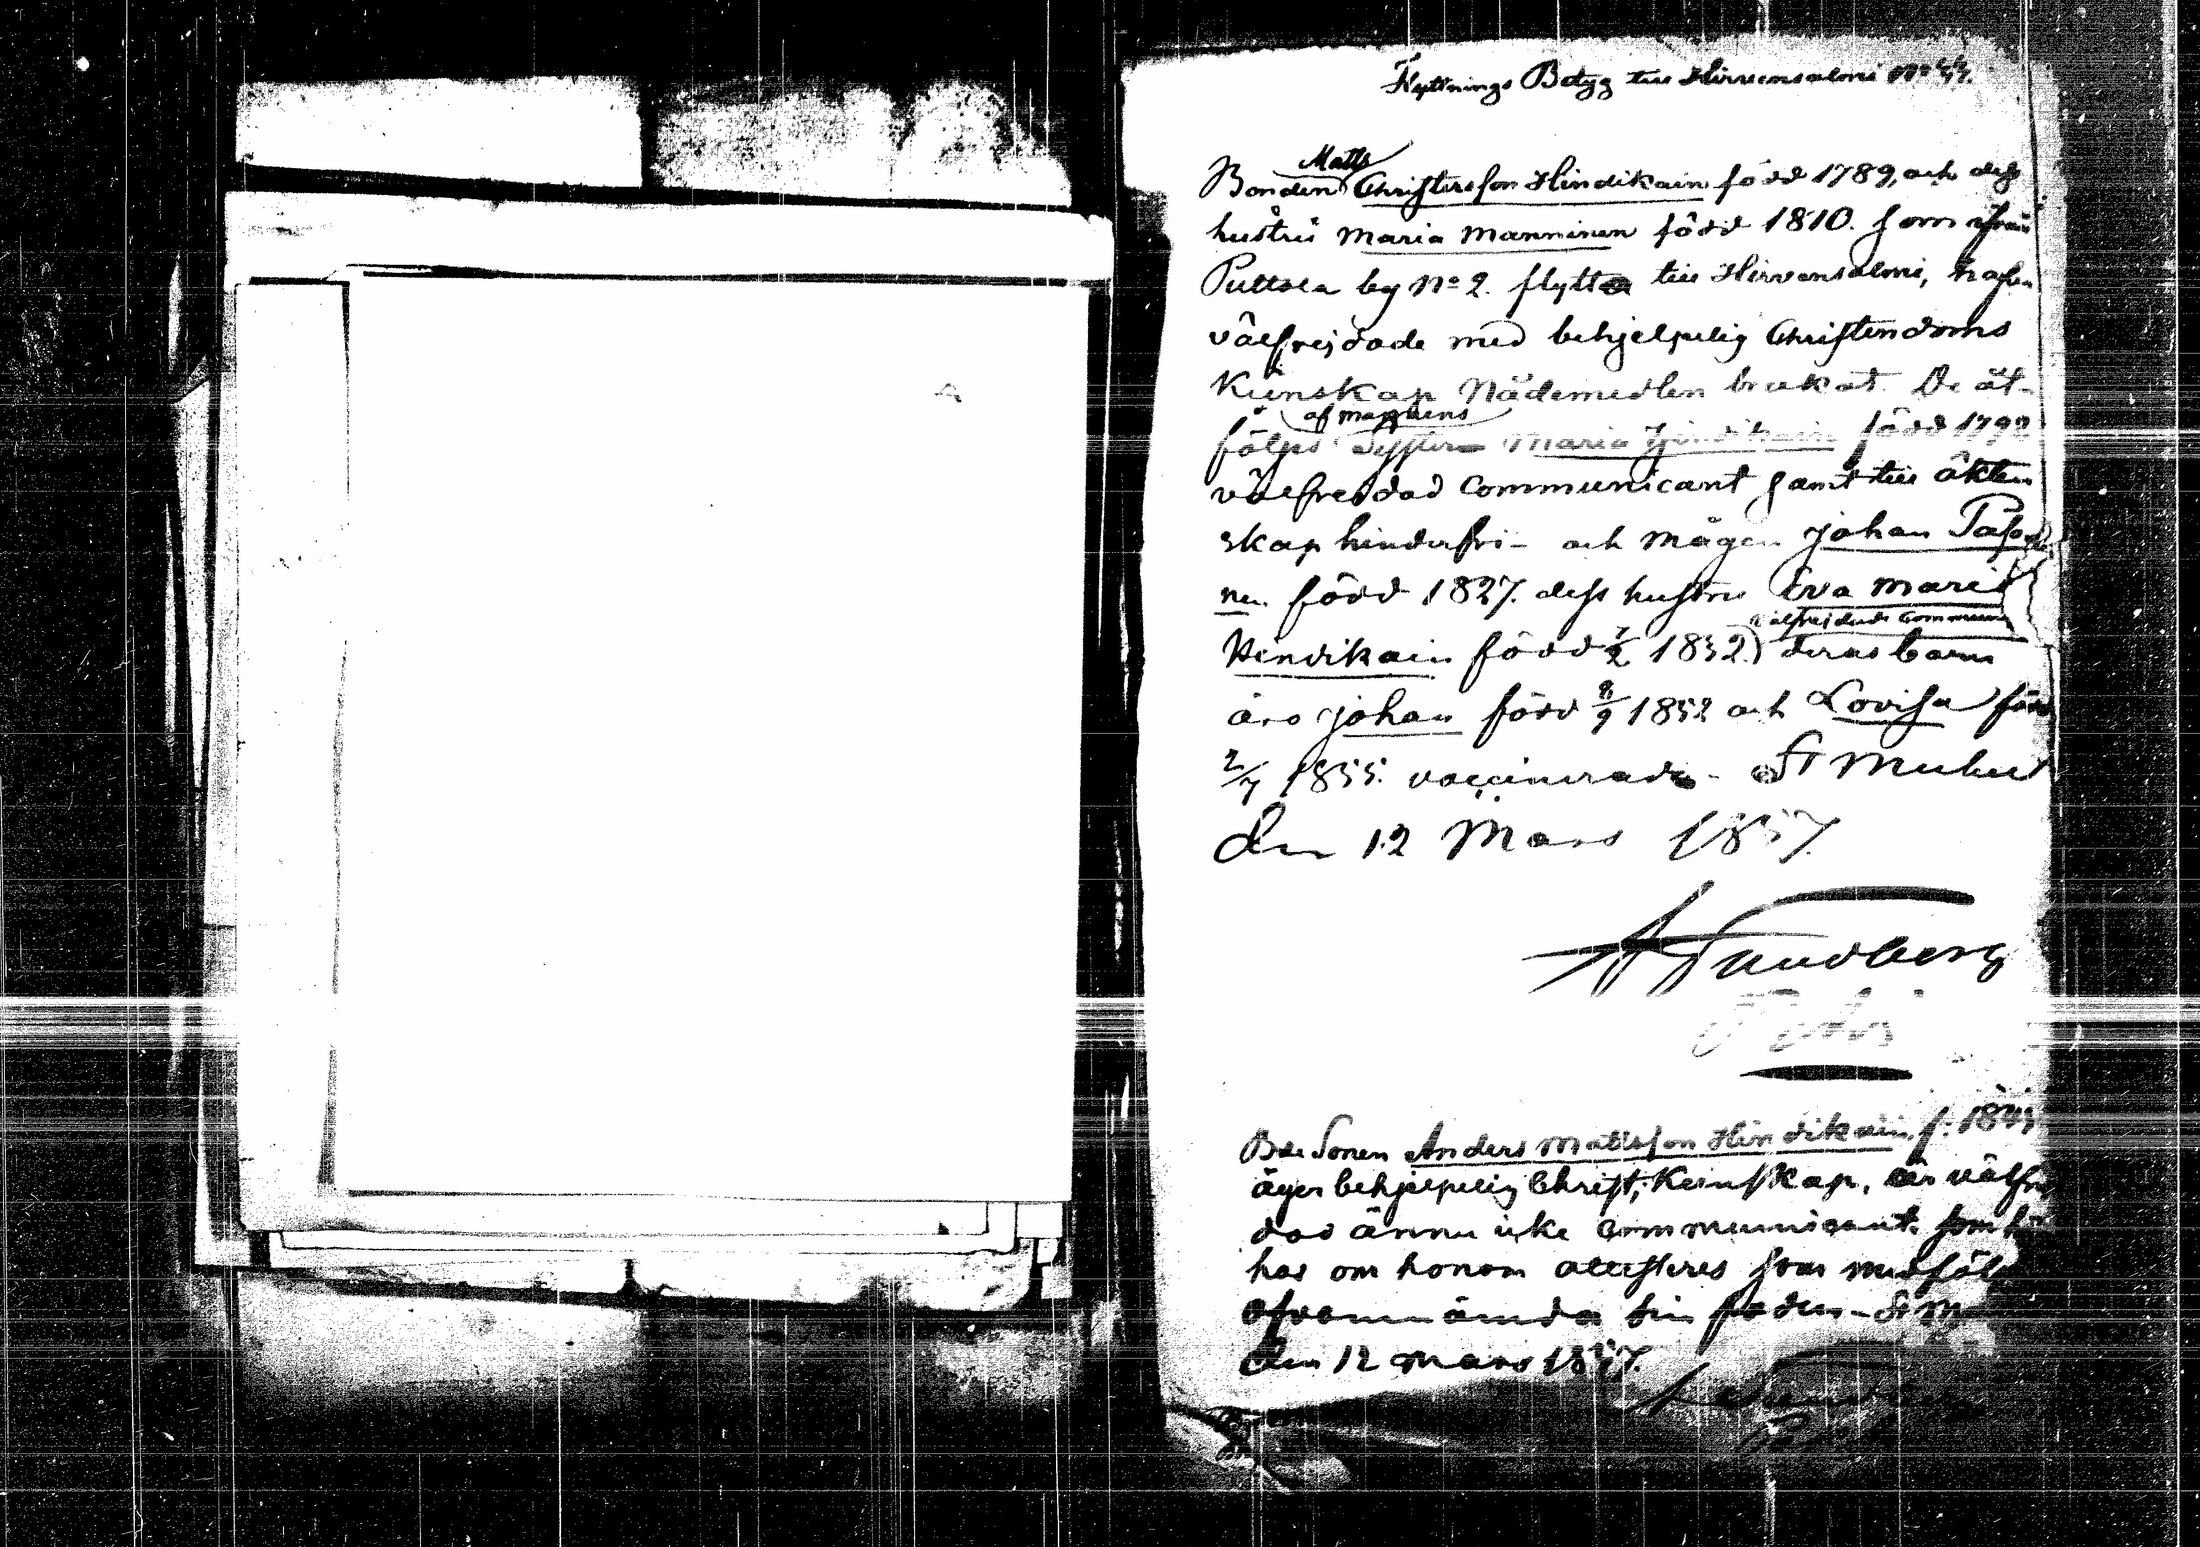 Flyttnings Betyg till Hirvensalmi No
Matts
Bonden Christersson Hindikain född 1789, och dess
hustru Maria Manninen född 1810. som ifrån
Pulttila by No 2. flytta till Hirvensalmi, hafva
välfrejdade med behjelpelig Christendoms
Kunskap Nådemedlen brukat. De åt-
af mannens
följas Maria Hindikain född 1792
välfrejdad Communicant samt till äkten
skap hinderfri - och mågen Johan Paso
nen född 1827. dess hustru Eva Maria
välfrejdade
Hindikain född 7/2 1832. deras barn
äro Johan född 8/9 1852 och Lovisa född
2/7 1855. vaccinerade - St Michel
den 12 Mars 1857.
A Sundberg
Bde Sonen Anders Mattsson Hindikain f.
äger behjelpelig Christ. Kunskap, är välfrej
dad ännu icke communicant. som
has om honom attesteras som medföl
ofvannämnda sin fader - St M
den 12 Mars 1857.
A Sundberg